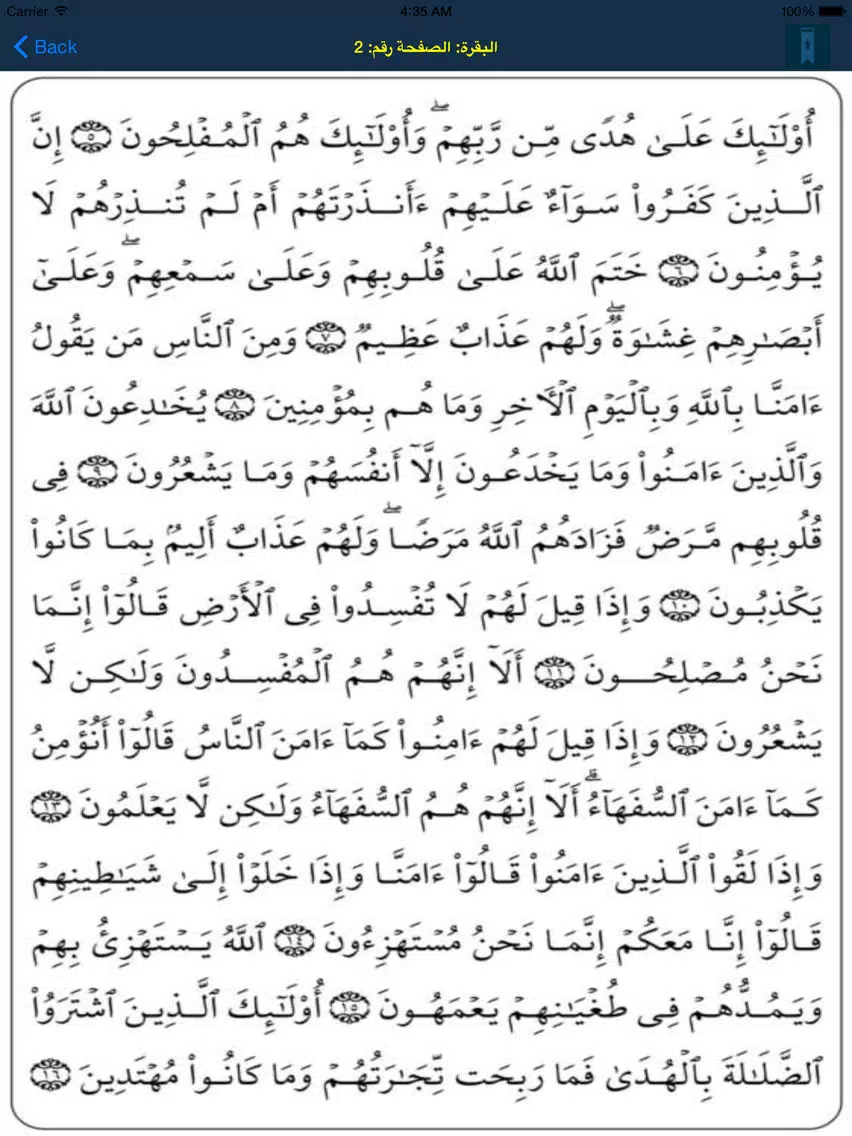 Carrier 4:35 AM 100%
Back البقرة: الصفحة رقم: 2
أُوْلَٰٓئِكَ عَلَىٰ هُدٗى مِّن رَّبِّهِمۡۖ وَأُوْلَٰٓئِكَ هُمُ ٱلۡمُفۡلِحُونَ ۝٥ إِنَّ
ٱلَّذِينَ كَفَرُواْ سَوَآءٌ عَلَيۡهِمۡ ءَأَنذَرۡتَهُمۡ أَمۡ لَمۡ تُنذِرۡهُمۡ لَا
يُؤۡمِنُونَ ۝٦ خَتَمَ ٱللَّهُ عَلَىٰ قُلُوبِهِمۡ وَعَلَىٰ سَمۡعِهِمۡۖ وَعَلَىٰٓ
أَبۡصَٰرِهِمۡ غِشَٰوَةٞۖ وَلَهُمۡ عَذَابٌ عَظِيمٞ ۝٧ وَمِنَ ٱلنَّاسِ مَن يَقُولُ
ءَامَنَّا بِٱللَّهِ وَبِٱلۡيَوۡمِ ٱلۡأٓخِرِ وَمَا هُم بِمُؤۡمِنِينَ ۝٨ يُخَٰدِعُونَ ٱللَّهَ
وَٱلَّذِينَ ءَامَنُواْ وَمَا يَخۡدَعُونَ إِلَّآ أَنفُسَهُمۡ وَمَا يَشۡعُرُونَ ۝٩ فِي
قُلُوبِهِم مَّرَضٞ فَزَادَهُمُ ٱللَّهُ مَرَضٗاۖ وَلَهُمۡ عَذَابٌ أَلِيمُۢ بِمَا كَانُواْ
يَكۡذِبُونَ ۝١٠ وَإِذَا قِيلَ لَهُمۡ لَا تُفۡسِدُواْ فِي ٱلۡأَرۡضِ قَالُوٓاْ إِنَّمَا
نَحۡنُ مُصۡلِحُونَ ۝١١ أَلَآ إِنَّهُمۡ هُمُ ٱلۡمُفۡسِدُونَ وَلَٰكِن لَّا
يَشۡعُرُونَ ۝١٢ وَإِذَا قِيلَ لَهُمۡ ءَامِنُواْ كَمَآ ءَامَنَ ٱلنَّاسُ قَالُوٓاْ أَنُؤۡمِنُ
كَمَآ ءَامَنَ ٱلسُّفَهَآءُۗ أَلَآ إِنَّهُمۡ هُمُ ٱلسُّفَهَآءُ وَلَٰكِن لَّا يَعۡلَمُونَ ۝١٣
وَإِذَا لَقُواْ ٱلَّذِينَ ءَامَنُواْ قَالُوٓاْ ءَامَنَّا وَإِذَا خَلَوۡاْ إِلَىٰ شَيَٰطِينِهِمۡ
قَالُوٓاْ إِنَّا مَعَكُمۡ إِنَّمَا نَحۡنُ مُسۡتَهۡزِءُونَ ۝١٤ ٱللَّهُ يَسۡتَهۡزِئُ بِهِمۡ
وَيَمُدُّهُمۡ فِي طُغۡيَٰنِهِمۡ يَعۡمَهُونَ ۝١٥ أُوْلَٰٓئِكَ ٱلَّذِينَ ٱشۡتَرَوُاْ
ٱلضَّلَٰلَةَ بِٱلۡهُدَىٰ فَمَا رَبِحَت تِّجَٰرَتُهُمۡ وَمَا كَانُواْ مُهۡتَدِينَ ۝١٦